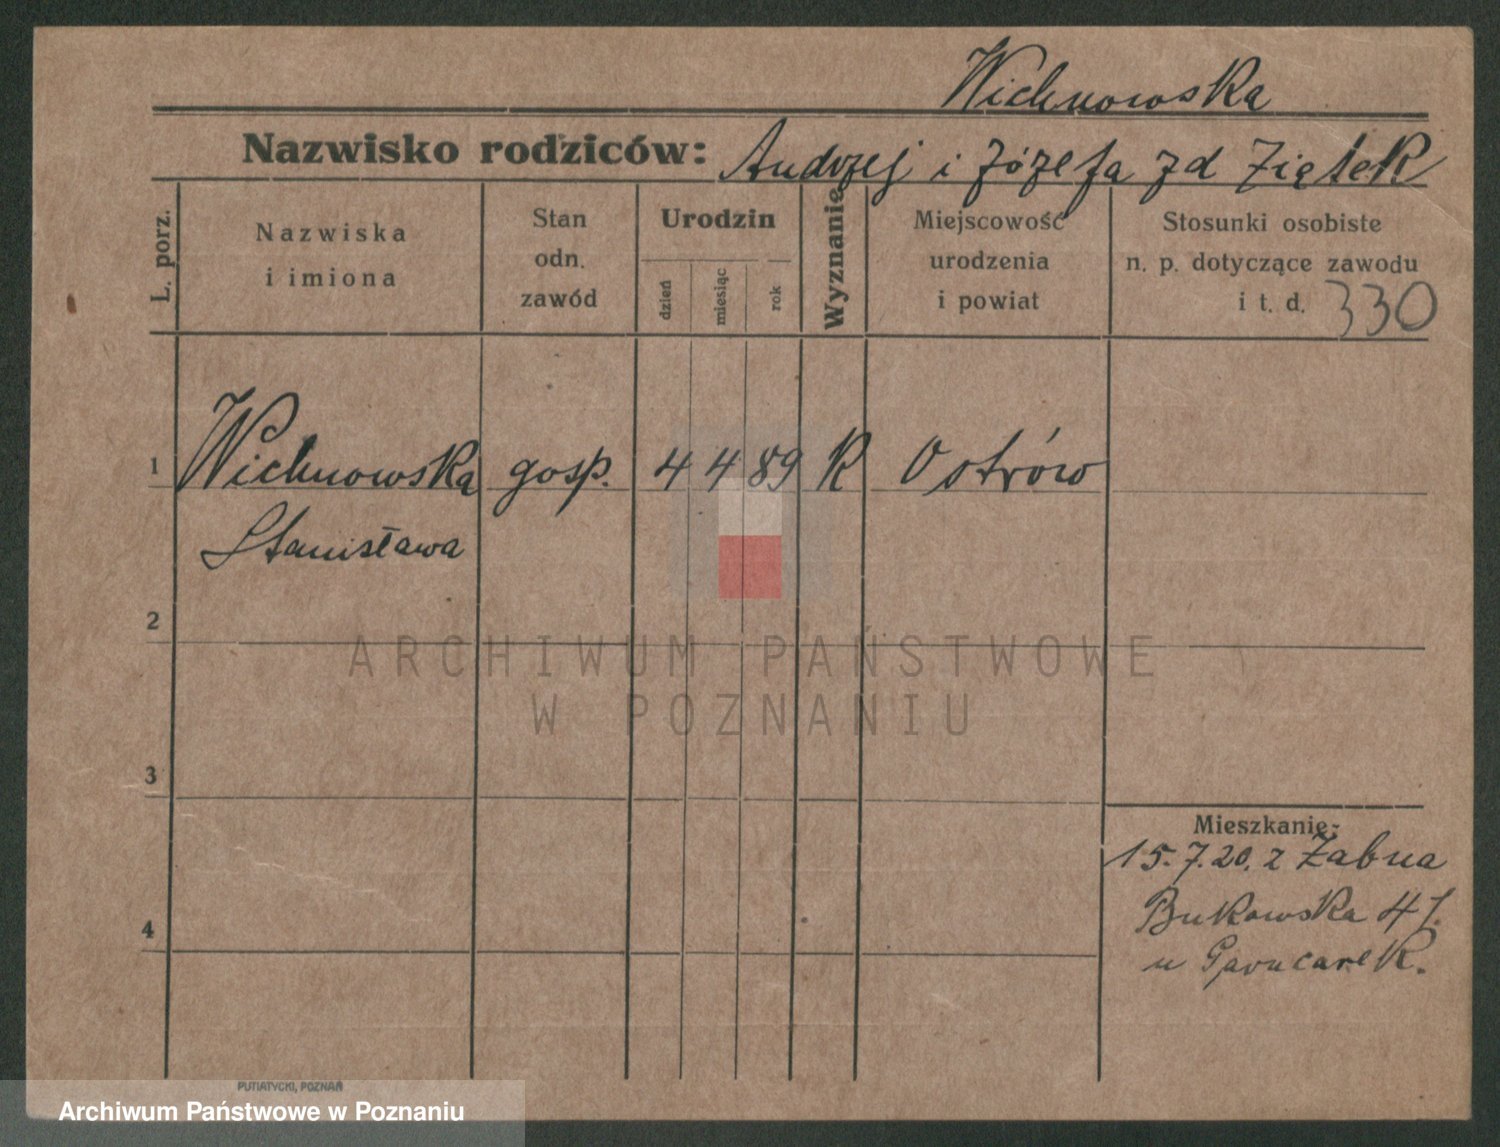 Wichnowska
Nazwisko rodziców: Andrzej i Józefa zd Ziętek
L. porz.
Nazwiska
i imiona
Stan
odn.
zawód
Urodzin
dzień
miesiąc
rok
Wyznanie
Miejscowość
urodzenia
i powiat
Stosunki osobiste
n. p. dotyczące zawodu
i t. d. 330
1 Wichnowska gosp. 4 4 89 K Ostrów
Stanisława
2
ARCHIWUM PAŃSTWOWE
W POZNANIU
3
Mieszkanie:
15.7.20. z Żabna
Bukowska
4
u Garncarek.
PUTIATYCKI, POZNAŃ
Archiwum Państwowe w Poznaniu